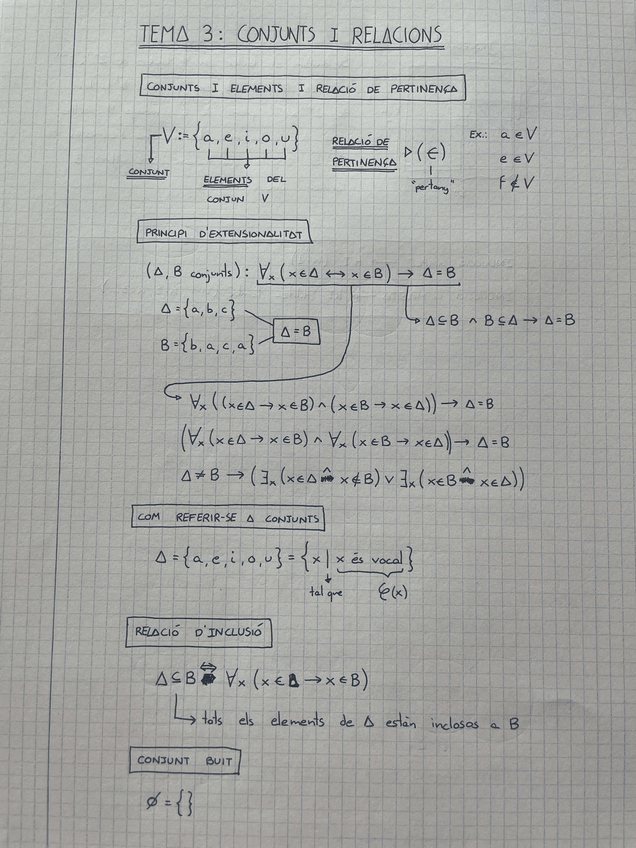 TEMA 3: CONJUNTS I RELACIONS
CONJUNTS I ELEMENTS I RELACIÓ DE PERTINENÇA
V:={a, e, i, o, u}
CONJUNT
ELEMENTS DEL
CONJUN V
RELACIÓ DE
PERTINENÇA (∈)
"pertany"
Ex.: a ∈ V
e ∈ V
f ∉ V
PRINCIPI D'EXTENSIONALITAT
(A, B conjunts): ∀x (x∈A ↔ x∈B) → A=B
A={a,b,c}
B={b,a,c,a}
A=B
A⊆B ∧ B⊆A → A=B
∀x ((x∈A → x∈B) ∧ (x∈B → x∈A)) → A=B
(∀x (x∈A → x∈B) ∧ ∀x (x∈B → x∈A)) → A=B
A≠B → (∃x (x∈A ∧ x∉B) ∨ ∃x (x∈B ∧ x∈A))
COM REFERIR-SE A CONJUNTS
A={a,e,i,o,u}={x | x és vocal}
tal que φ(x)
RELACIÓ D'INCLUSIÓ
A⊆B ⇔ ∀x (x∈A → x∈B)
tots els elements de A están inclosos a B
CONJUNT BUIT
∅={}